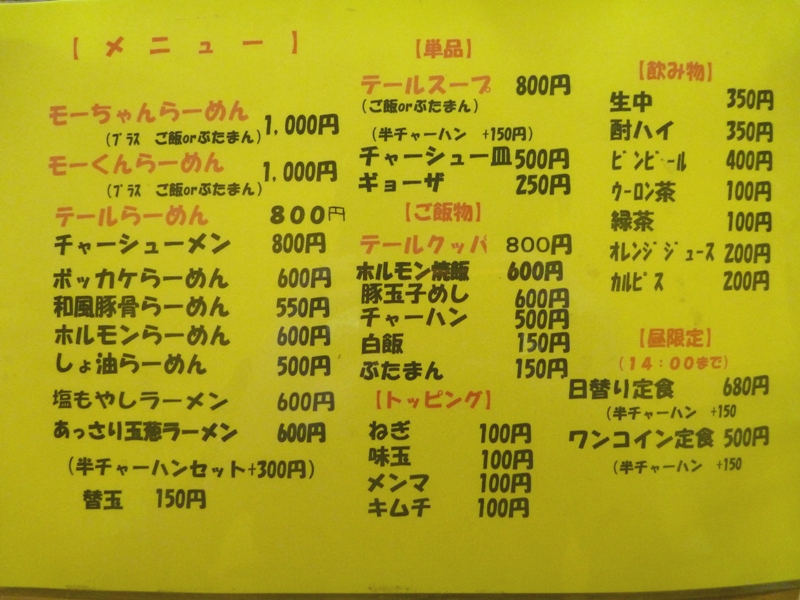 【メニュー】
モーちゃんらーめん 1,000円
(プラス ご飯orぶたまん)
モーくんらーめん 1,000円
(プラス ご飯orぶたまん)
テールらーめん 800円
チャーシューメン 800円
ボッカケらーめん 600円
和風豚骨らーめん 550円
ホルモンらーめん 600円
しょ油らーめん 500円
塩もやしラーメン 600円
あっさり玉葱ラーメン 600円
(半チャーハンセット+300円)
替玉 150円
【単品】
テールスープ 800円
(ご飯orぶたまん)
(半チャーハン +150円)
チャーシュー皿 500円
ギョーザ 250円
【ご飯物】
テールクッパ 800円
ホルモン焼飯 600円
豚玉子めし 600円
チャーハン 500円
白飯 150円
ぶたまん 150円
【トッピング】
ねぎ 100円
味玉 100円
メンマ 100円
キムチ 100円
【飲み物】
生中 350円
酎ハイ 350円
ビンビール 400円
ウーロン茶 100円
緑茶 100円
オレンジジュース 200円
カルピス 200円
【昼限定】
(14:00まで)
日替り定食 680円
(半チャーハン +150
ワンコイン定食 500円
(半チャーハン +150